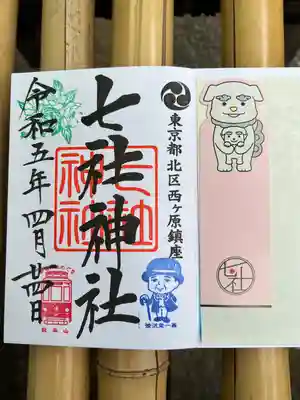 東京都北区西ヶ原鎮座
七社神社
七社
神社
令和五年四月廿四日
飛鳥山
渋沢栄一翁
七社